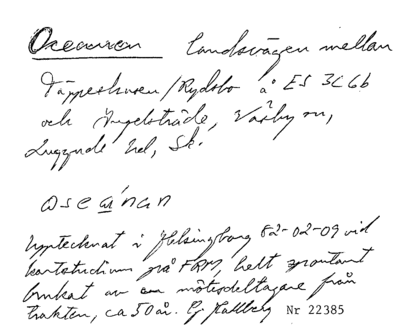 Oceanen landsvägen mellan
Täppeshusen/Rydsbo å ES 3C6b
och Ingelsträde, Väsby sn,
Luggude hd, Sk.
Upptecknat i Helsingborg 82-02-09 vid
kartstudium på FRM, helt spontant
brukat av en mötesdeltagare från
trakten, ca 50 år. Nr 22385